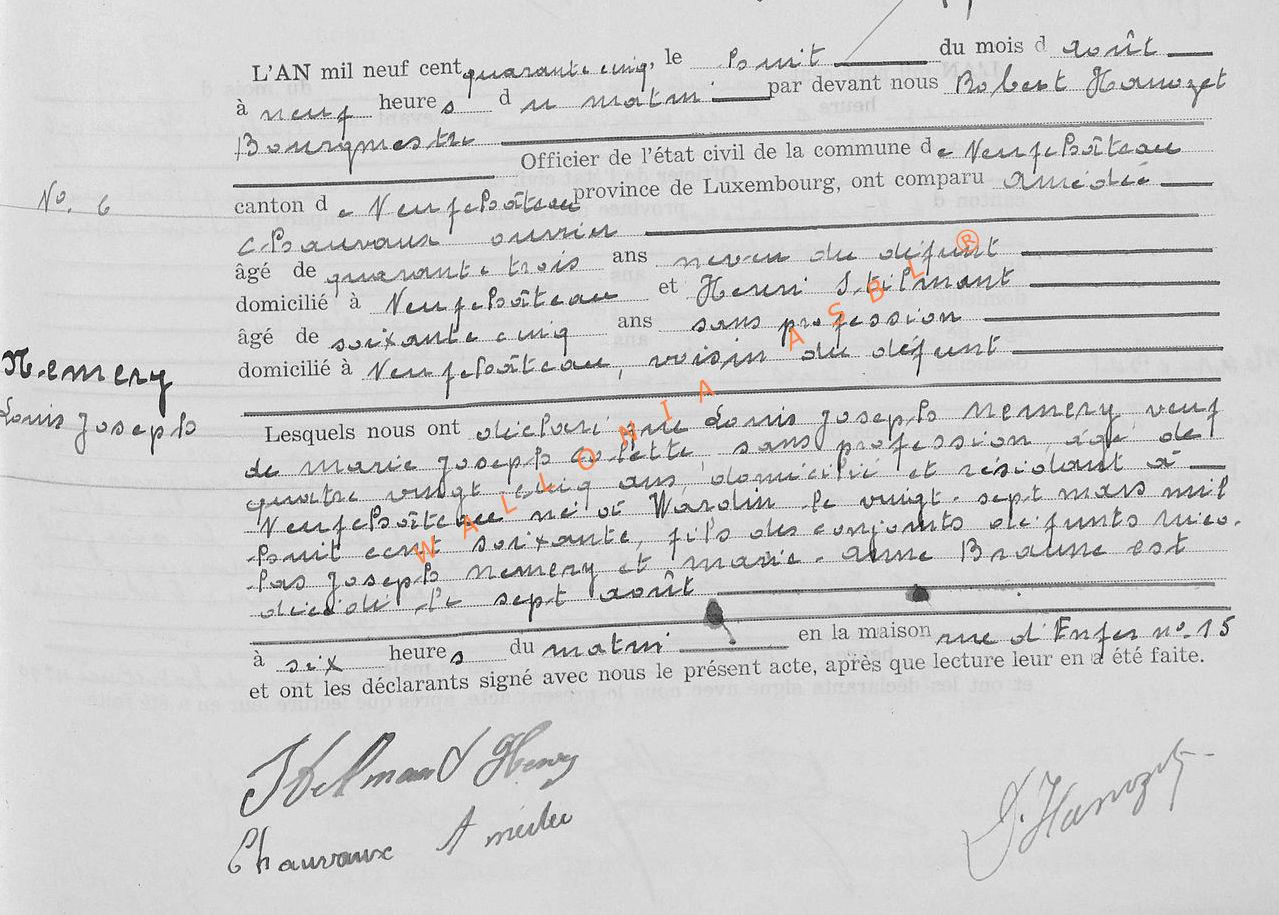 L'AN mil neuf cent quarante cinq, le huit du mois d août
à neuf heures du matin par devant nous Robert Hanozet
Bourgmestre
Officier de l'état civil de la commune de Neufchâteau
No. 6
canton de Neufchâteau province de Luxembourg, ont comparu Amédée
Chauvaux ouvrier
âgé de quarante trois ans neveu du défunt
domicilié à Neufchâteau et Henri Stilmant
âgé de soixante cinq ans sans profession
domicilié à Neufchâteau, voisin du défunt
Nemery
Louis Joseph
Lesquels nous ont déclaré que Louis Joseph Nemery veuf
de Marie Joseph Colette sans profession, âgé de
quatre vingt cinq ans, domicilié et résidant à
Neufchâteau né à Wardin le vingt-sept mars mil
huit cent soixante, fils des conjoints défunts Nico-
las Joseph Nemery et Marie-Anne Braune est
décédé le sept août
à six heures du matin en la maison rue d'Enfer no. 15
et ont les déclarants signé avec nous le présent acte, après que lecture leur en a été faite.
Stilmant Henry
Chauvaux Amédée
Hanozet
WALLONIA ASBL ®